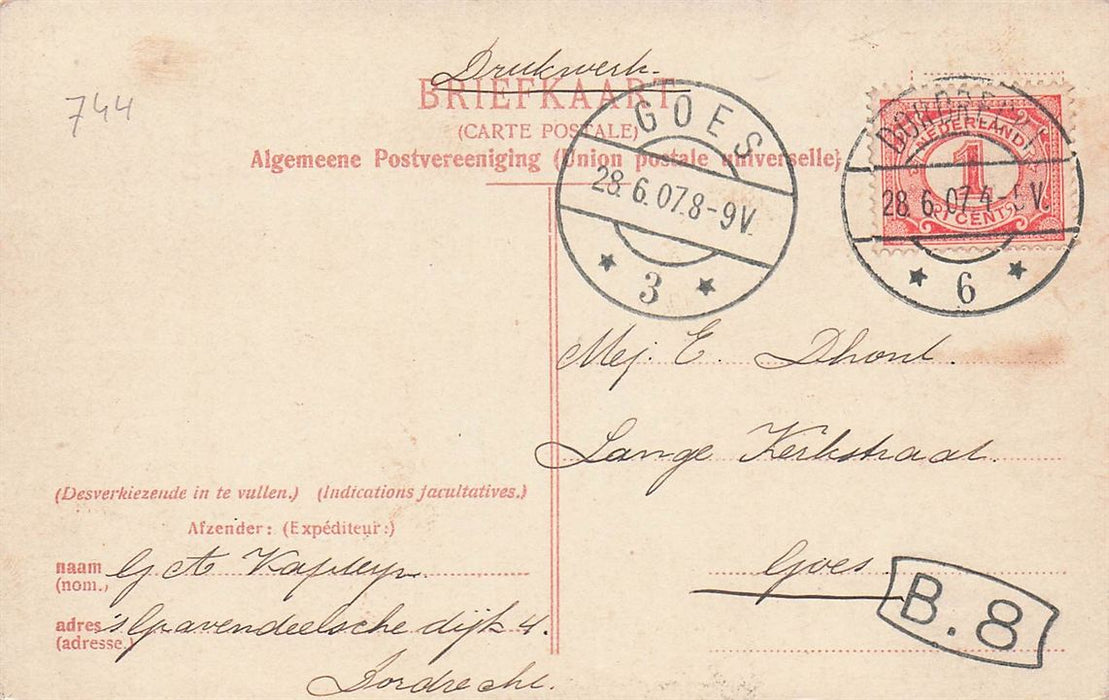 Drukwerk.
BRIEFKAART
(CARTE POSTALE)
Algemeene Postvereeniging (Union postale universelle)
744
GOES
28.6.07.8-9V.
3
DORDRECHT
28.6.07.4-5V.
6
NEDERLAND
1
CENT
Mej. E. Dhont.
Lange Kerkstraat.
Goes.
B.8
(Desverkiezende in te vullen.) (Indications facultatives.)
Afzender: (Expéditeur:)
naam G A
(nom.)
adres 's Gravendeelsche dijk 4.
(adresse.)
Dordrecht.